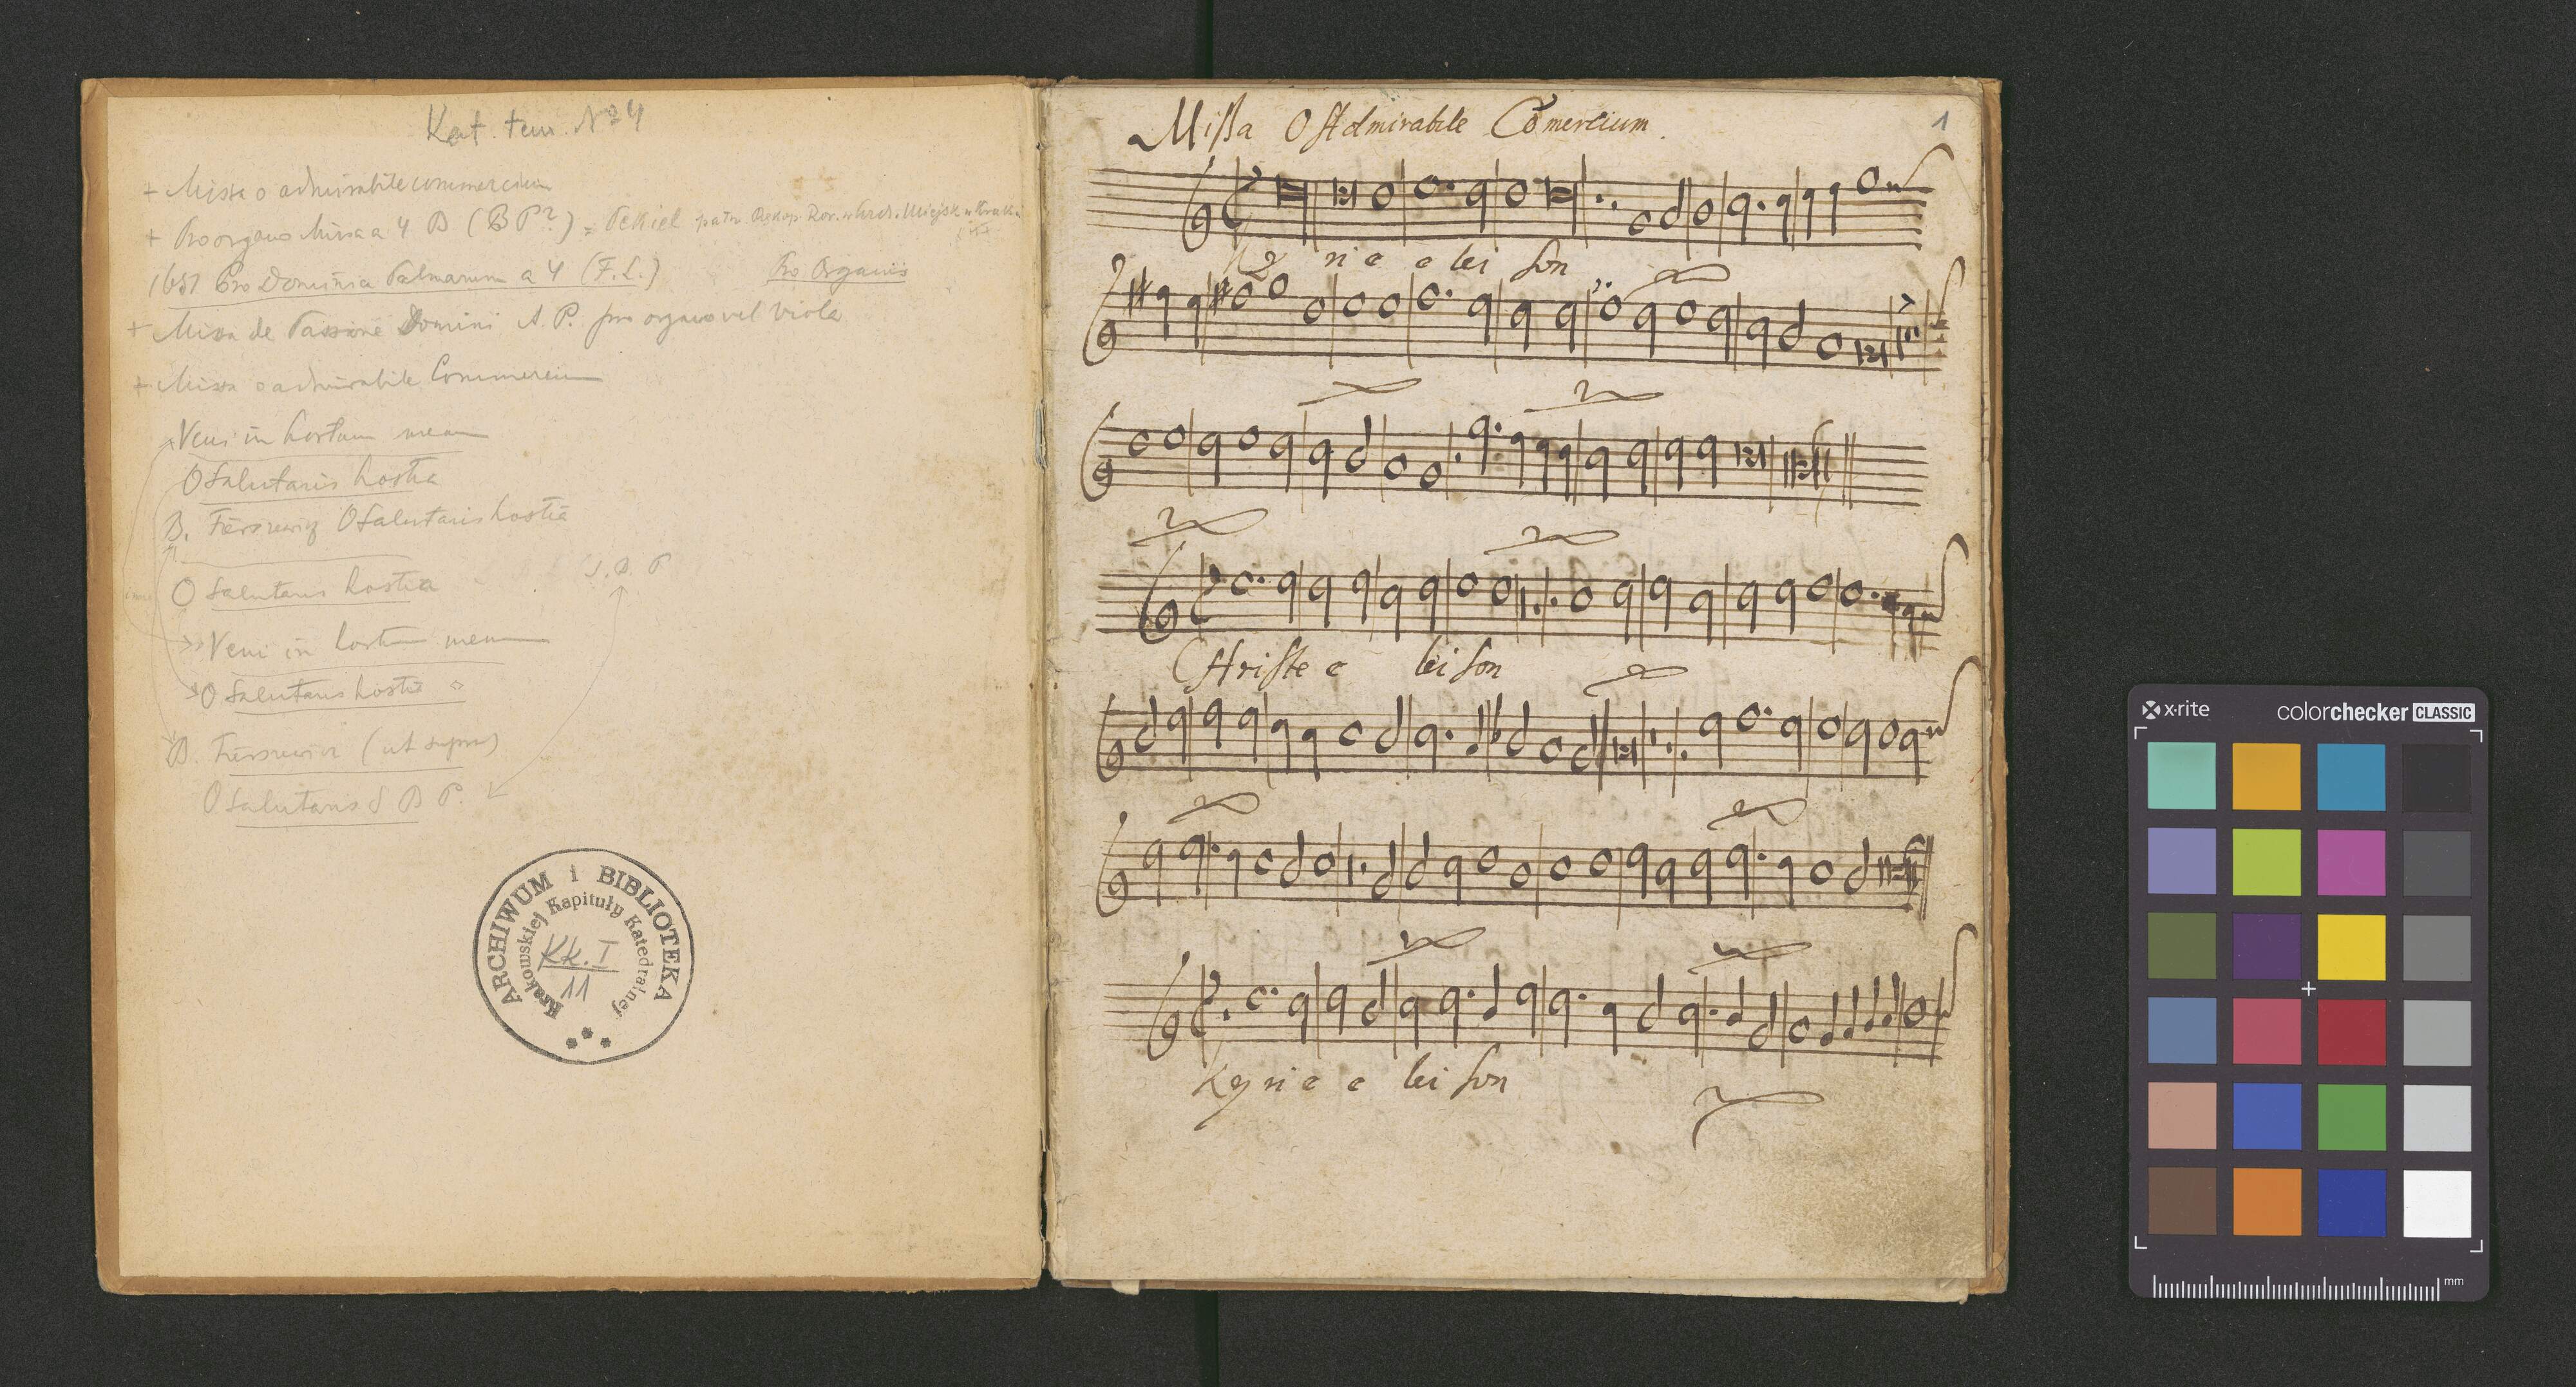 Kat. tem. No 4
+ Missa o admirabile commercium
+ Pro organo Missa a 4 B (B P?) = Pekiel
1651 Pro Dominica Palmarum a 4 (F. L.) Pro Organis
+ Missa de Passione Domini A. P. pro organo vel viola
+ Missa o admirabile Commercium
Veni in hortum meum
O Salutaris hostia
B. O Salutaris hostia
O Salutaris hostia
S. B. P
Veni in hortum meum
O Salutaris hostia
B. (ut supra)
O Salutaris S B P.
ARCHIWUM i BIBLIOTEKA
Krakowskiej Kapituły Katedralnej
Kk. I
11
Missa O Admirabile Comercium.
1
Ky ri e e lei son
Christe e lei son
Ky ri e e lei son
x·rite
colorchecker CLASSIC
mm